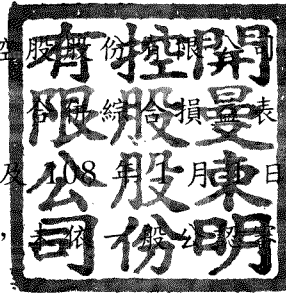 開曼東明
控股股份
有限公司
股股份有限公司
合併綜合損益表
及 108 年 1 月 1 日
依一般公認審